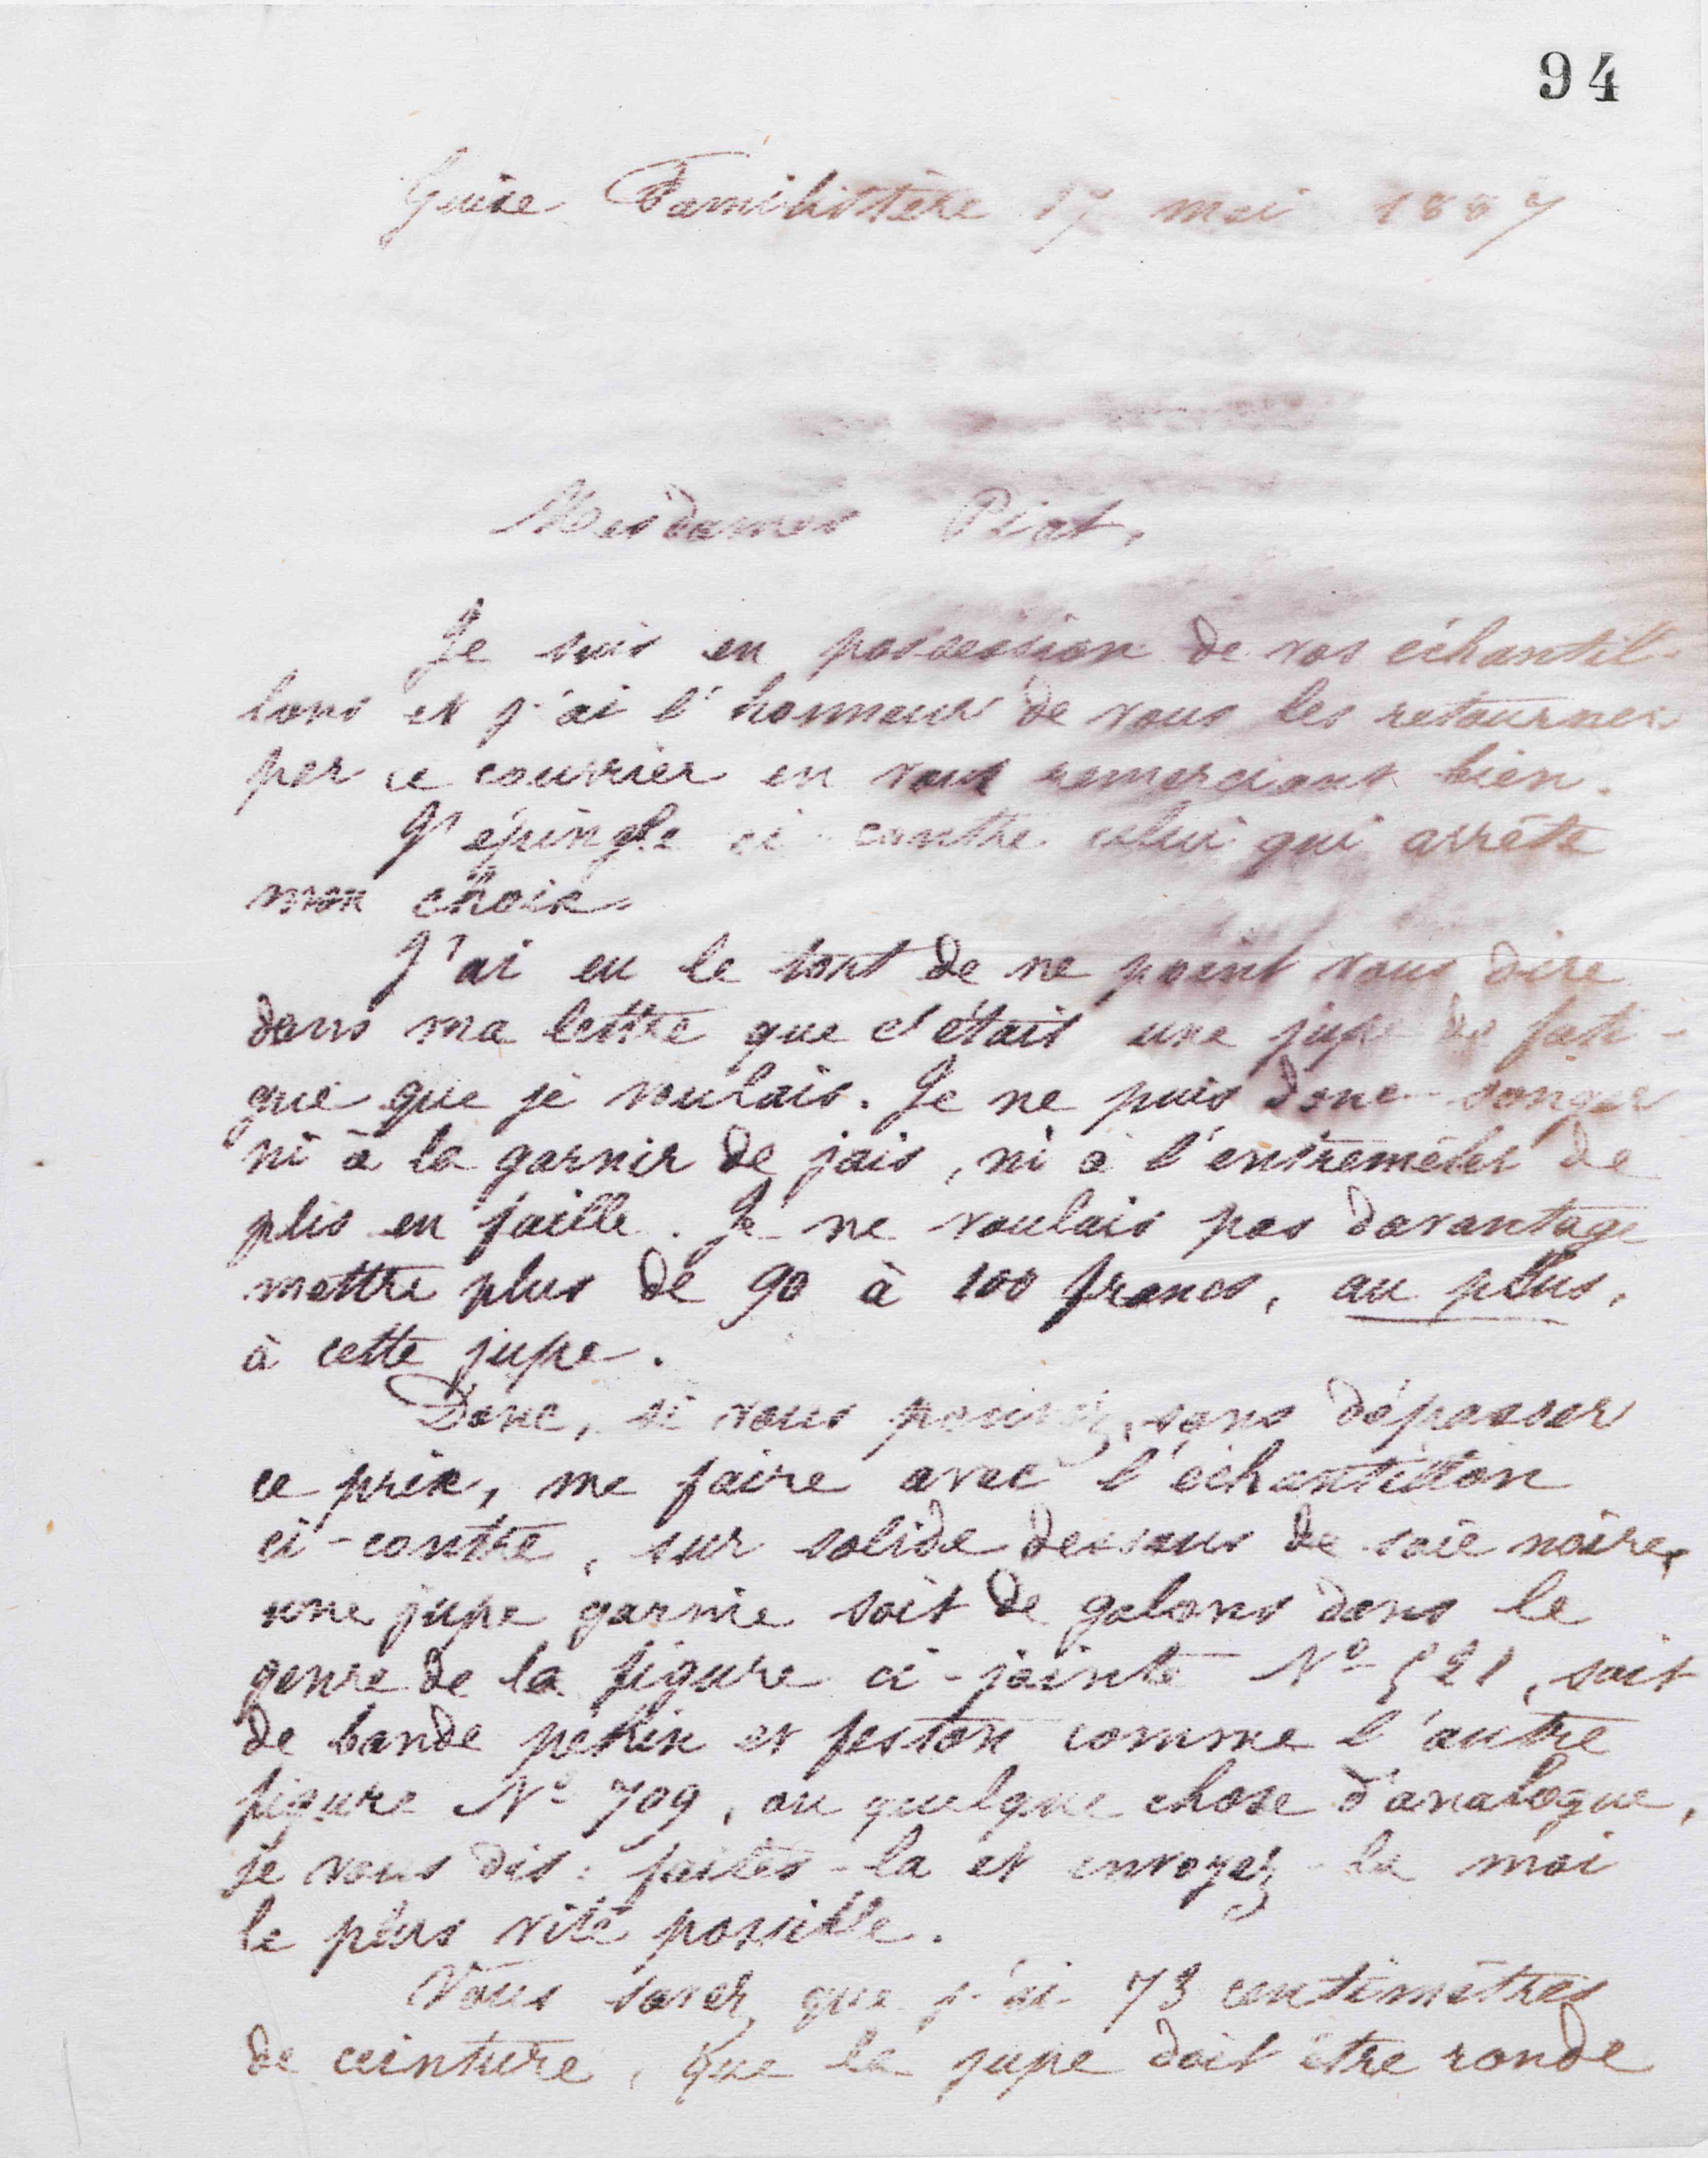 94
Guise Familistère 17 mai 1887
Mesdames Piat,
Je suis en possession de vos échantil-
lons et j'ai l'honneur de vous les retourner
par ce courrier en vous remerciant bien.
J'épingle ci-contre celui qui arrête
mon choix.
J'ai eu le tort de ne point vous dire
dans ma lettre que c'était une jupe de fati-
gue que je voulais. Je ne puis donc songer
ni à la garnir de jais, ni à l'entremêler de
plis en faille. Je ne voulais pas davantage
mettre plus de 90 à 100 francs, au plus,
à cette jupe.
Donc, si vous pouvez, sans dépasser
ce prix, me faire avec l'échantillon
ci-contre, sur solide dessous de soie noire,
une jupe garnie soit de galons dans le
genre de la figure ci-jointe No 521, soit
de bande pékin et feston comme l'autre
figure No 709, ou quelque chose d'analogue,
je vous dis : faites-la et envoyez-la moi
le plus vite possible.
Vous savez que j'ai 73 centimètres
de ceinture, que la jupe doit être ronde